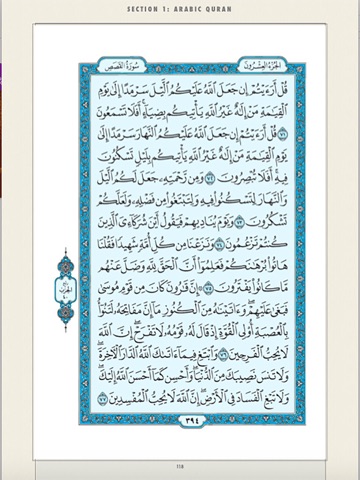 SECTION 1: ARABIC QURAN
الجزء العشرون
سورة القصص
قُلْ أَرَءَيْتُمْ إِن جَعَلَ ٱللَّهُ عَلَيْكُمُ ٱلَّيْلَ سَرْمَدًا إِلَىٰ يَوْمِ
ٱلْقِيَٰمَةِ مَنْ إِلَٰهٌ غَيْرُ ٱللَّهِ يَأْتِيكُم بِضِيَآءٍ أَفَلَا تَسْمَعُونَ
٧١ قُلْ أَرَءَيْتُمْ إِن جَعَلَ ٱللَّهُ عَلَيْكُمُ ٱلنَّهَارَ سَرْمَدًا إِلَىٰ
يَوْمِ ٱلْقِيَٰمَةِ مَنْ إِلَٰهٌ غَيْرُ ٱللَّهِ يَأْتِيكُم بِلَيْلٍ تَسْكُنُونَ
فِيهِ أَفَلَا تُبْصِرُونَ ٧٢ وَمِن رَّحْمَتِهِۦ جَعَلَ لَكُمُ ٱلَّيْلَ
وَٱلنَّهَارَ لِتَسْكُنُوا۟ فِيهِ وَلِتَبْتَغُوا۟ مِن فَضْلِهِۦ وَلَعَلَّكُمْ
تَشْكُرُونَ ٧٣ وَيَوْمَ يُنَادِيهِمْ فَيَقُولُ أَيْنَ شُرَكَآءِىَ ٱلَّذِينَ
كُنتُمْ تَزْعُمُونَ ٧٤ وَنَزَعْنَا مِن كُلِّ أُمَّةٍ شَهِيدًا فَقُلْنَا
هَاتُوا۟ بُرْهَٰنَكُمْ فَعَلِمُوٓا۟ أَنَّ ٱلْحَقَّ لِلَّهِ وَضَلَّ عَنْهُم
مَّا كَانُوا۟ يَفْتَرُونَ ٧٥ إِنَّ قَٰرُونَ كَانَ مِن قَوْمِ مُوسَىٰ
فَبَغَىٰ عَلَيْهِمْ وَءَاتَيْنَٰهُ مِنَ ٱلْكُنُوزِ مَآ إِنَّ مَفَاتِحَهُۥ لَتَنُوٓأُ
بِٱلْعُصْبَةِ أُو۟لِى ٱلْقُوَّةِ إِذْ قَالَ لَهُۥ قَوْمُهُۥ لَا تَفْرَحْ إِنَّ ٱللَّهَ
لَا يُحِبُّ ٱلْفَرِحِينَ ٧٦ وَٱبْتَغِ فِيمَآ ءَاتَىٰكَ ٱللَّهُ ٱلدَّارَ ٱلْءَاخِرَةَ
وَلَا تَنسَ نَصِيبَكَ مِنَ ٱلدُّنْيَا وَأَحْسِن كَمَآ أَحْسَنَ ٱللَّهُ إِلَيْكَ
وَلَا تَبْغِ ٱلْفَسَادَ فِى ٱلْأَرْضِ إِنَّ ٱللَّهَ لَا يُحِبُّ ٱلْمُفْسِدِينَ ٧٧
٣٩٤
118